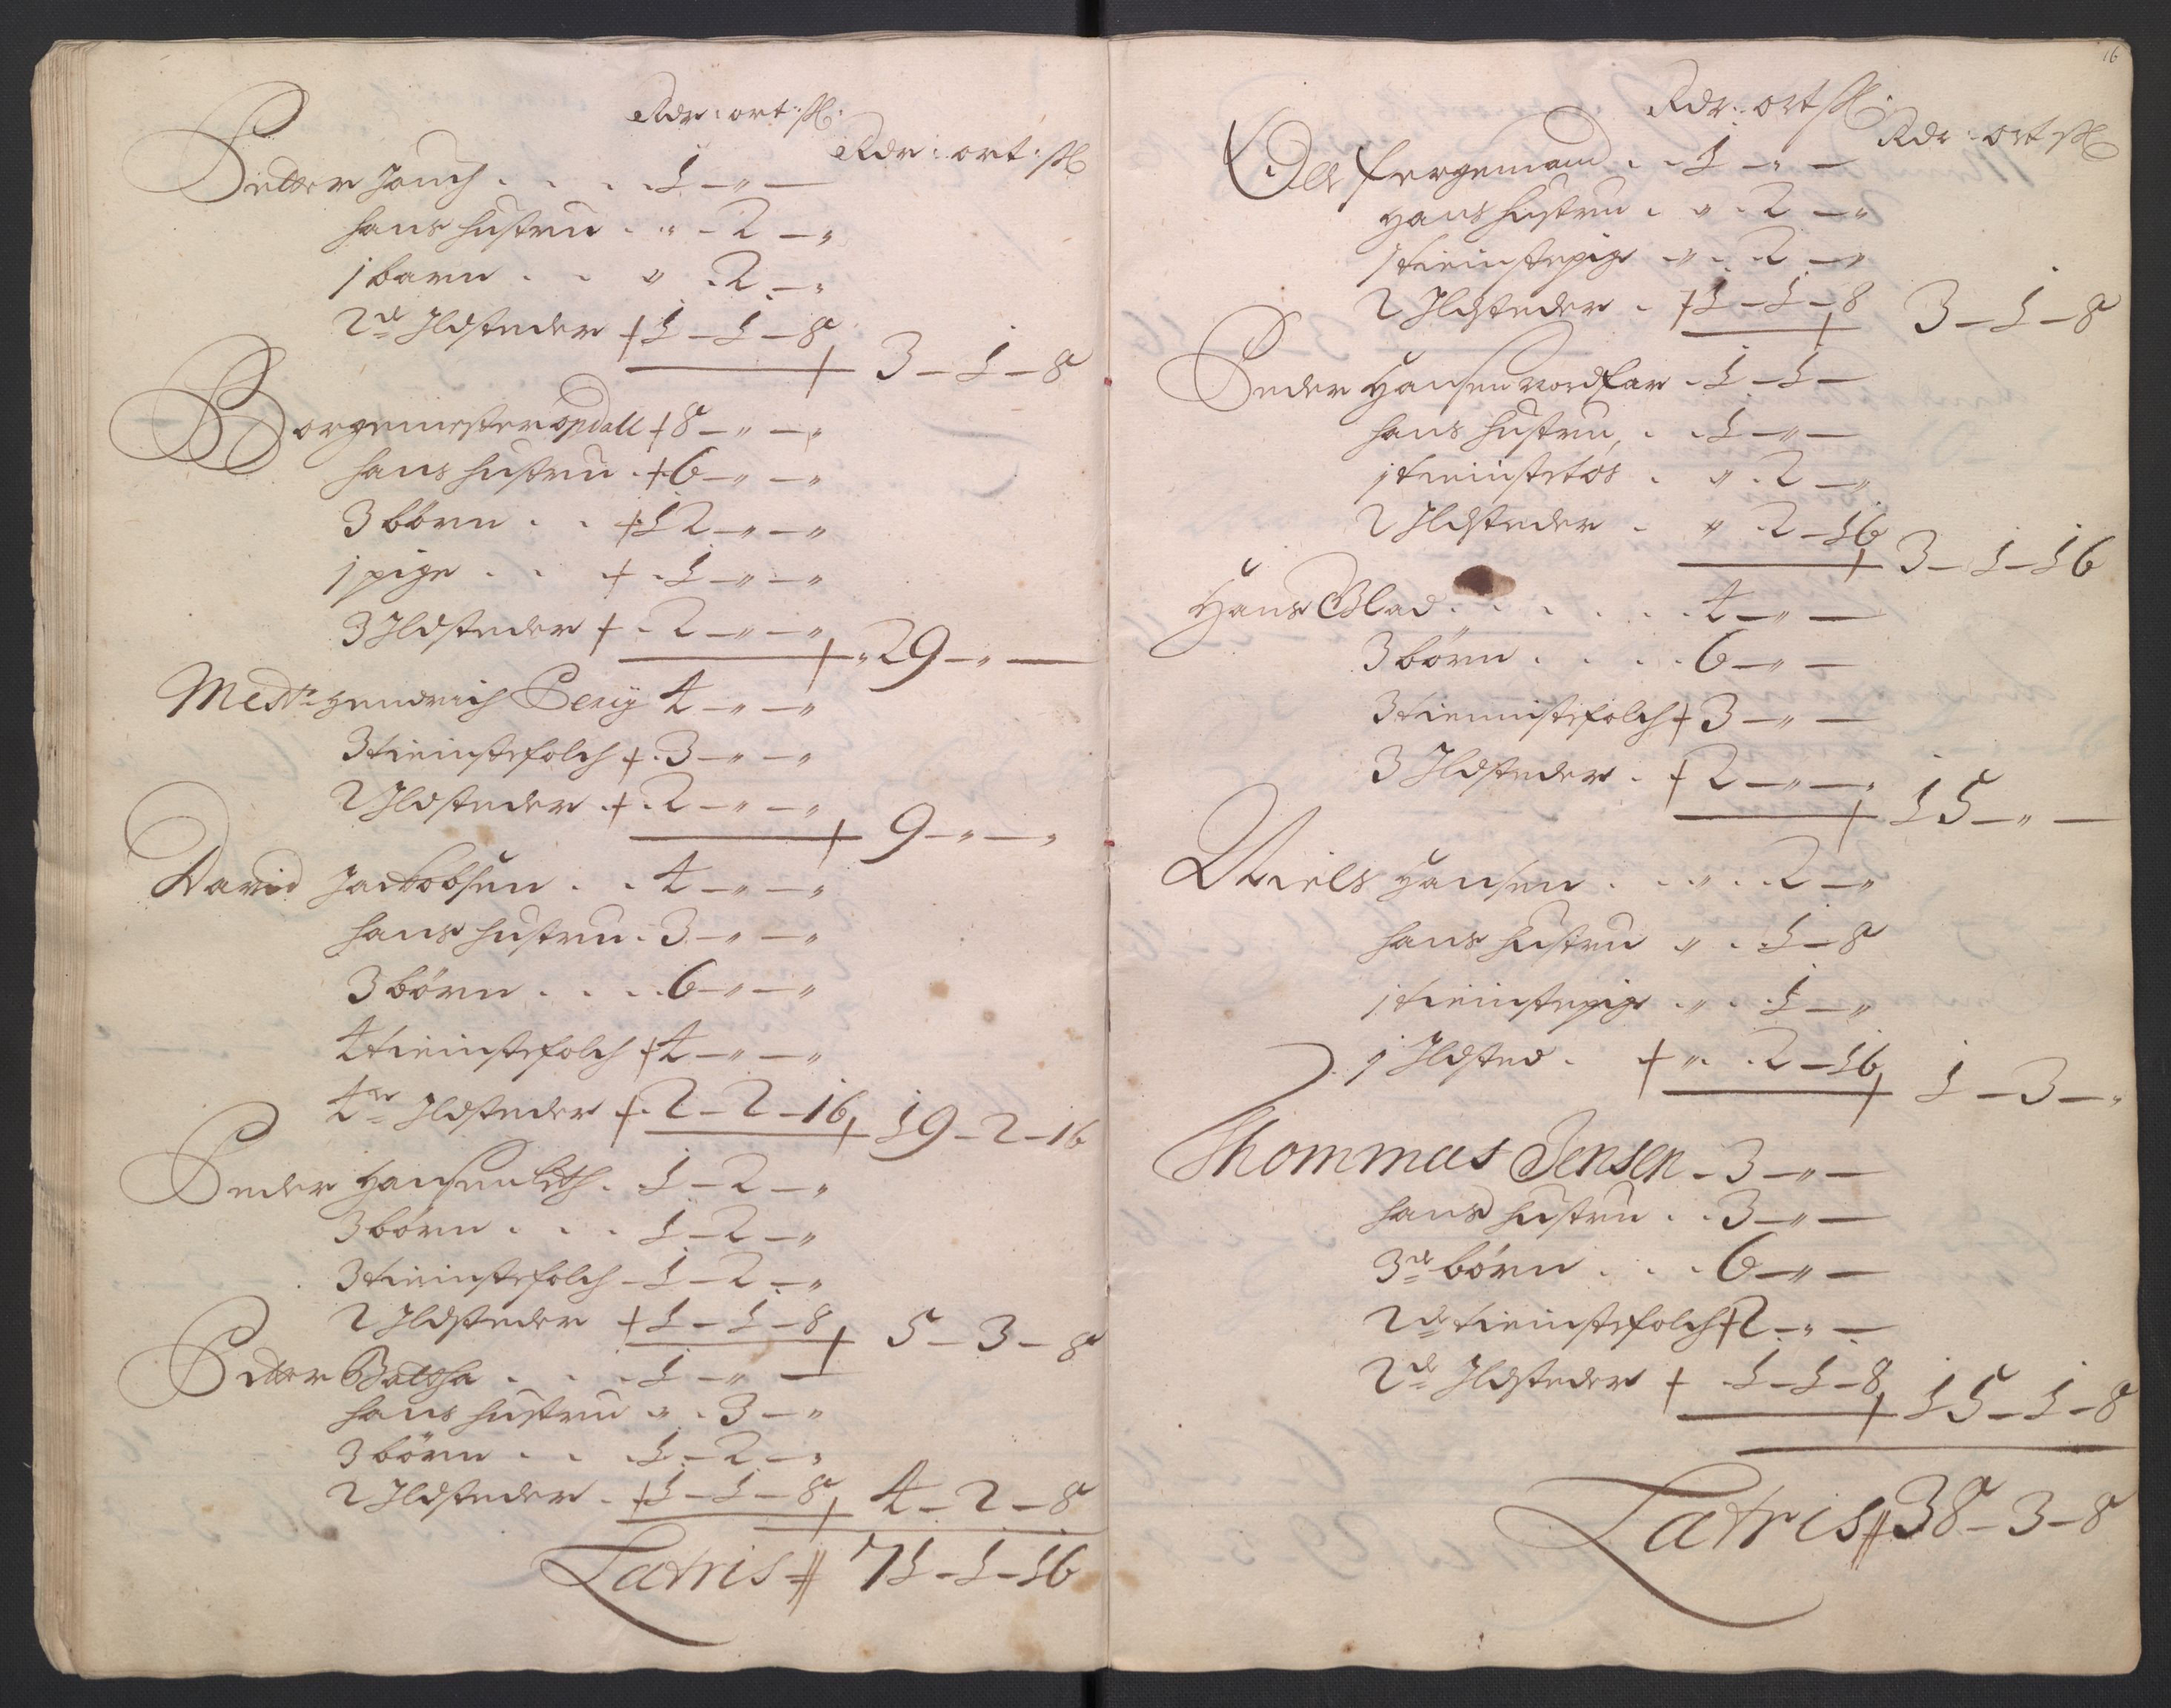 Rdr: ort: ſl:
Rdr: ort: ſl
Petter Jauch . . . . 1 – " –
hans hustru . " - 2 – "
1 barn . . " . 2 – "
2de Ildsteder + 1 – 1 – 8
3 – 1 – 8
Borgemester Opdall + 8 – " – "
hans hustru . + 6 – " – "
3 børn . . + 12 – " – "
1 pige . . + . 1 – " – "
3 Ildsteder + . 2 – " – "
29 – " –
Mestr Hendrich 4 – " – "
3 tieinstefolch + . 3 – " – "
2 Ildsteder . + . 2 – " – "
9 – " – "
David Jackobsen . . 4 – " – "
hans hustru . 3 – " – "
3 børn . . . . 6 – " – "
4 tieinstefolch + 4 – " – "
4er Ildsteder + . 2 – 2 – 16
19 – 2 – 16
Peder Hansen . 1 – 2 – "
3 børn . . . 1 – 2 – "
3 tieinstefolch – 1 – 2 – "
2 Ildsteder + 1 – 1 – 8
5 – 3 – 8
Petter Baltza . . . 1 – " –
hans hustru " . 3 – "
3 børn . . . 1 – 2 – "
2 Ildsteder . + 1 – 1 – 8
4 – 2 – 8
Latris 71 – 1 – 16
16
Rdr: ort ſl
Rdr: ort ſl
Olle fergemand . . 1 – " –
Hans hustru . " . 2 – "
1 tieinstepige " . 2 – "
2 Ildsteder . + 1 – 1 – 8
3 – 1 – 8
Peder Hansen nordfar . 1 – 1 –
hans hustru, . . 1 – " –
1 tieinstetøs . " . 2 – "
2 Ildsteder . " . 2 – 16
3 – 1 – 16
Hans Blad . . . . . . 4 – " –
3 børn . . . . 6 – " –
3 tiennistefolch + 3 – " –
3 Ildsteder . + 2 – " – "
15 – " –
Niels Hansen . . " . . 2 – "
hans hustru " . 1 – 8
1 tieinstepige . " . . 1 – "
1 Ildsted . + " . . 2 – 16
1 – 3 – "
Thommas Jensen – 3 – " –
hans hustru . . 3 – " –
3de børn . . . 6 – " –
2de tieinstefolch + 2 – " –
2de Ildsteder + . 1 – 1 – 8
15 – 1 – 8
Latris 38 – 3 – 8